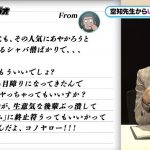 From
空知先生から
も、その人気にあやかろうと
るシャバ僧ばかりで、、、
もういいでしょ?
目障りになってきたんで
やっちゃってもいいすか?
が、生意気な後輩ぶっ潰して
に終止符うってもいいかって
んだよ、コノヤロー!!!